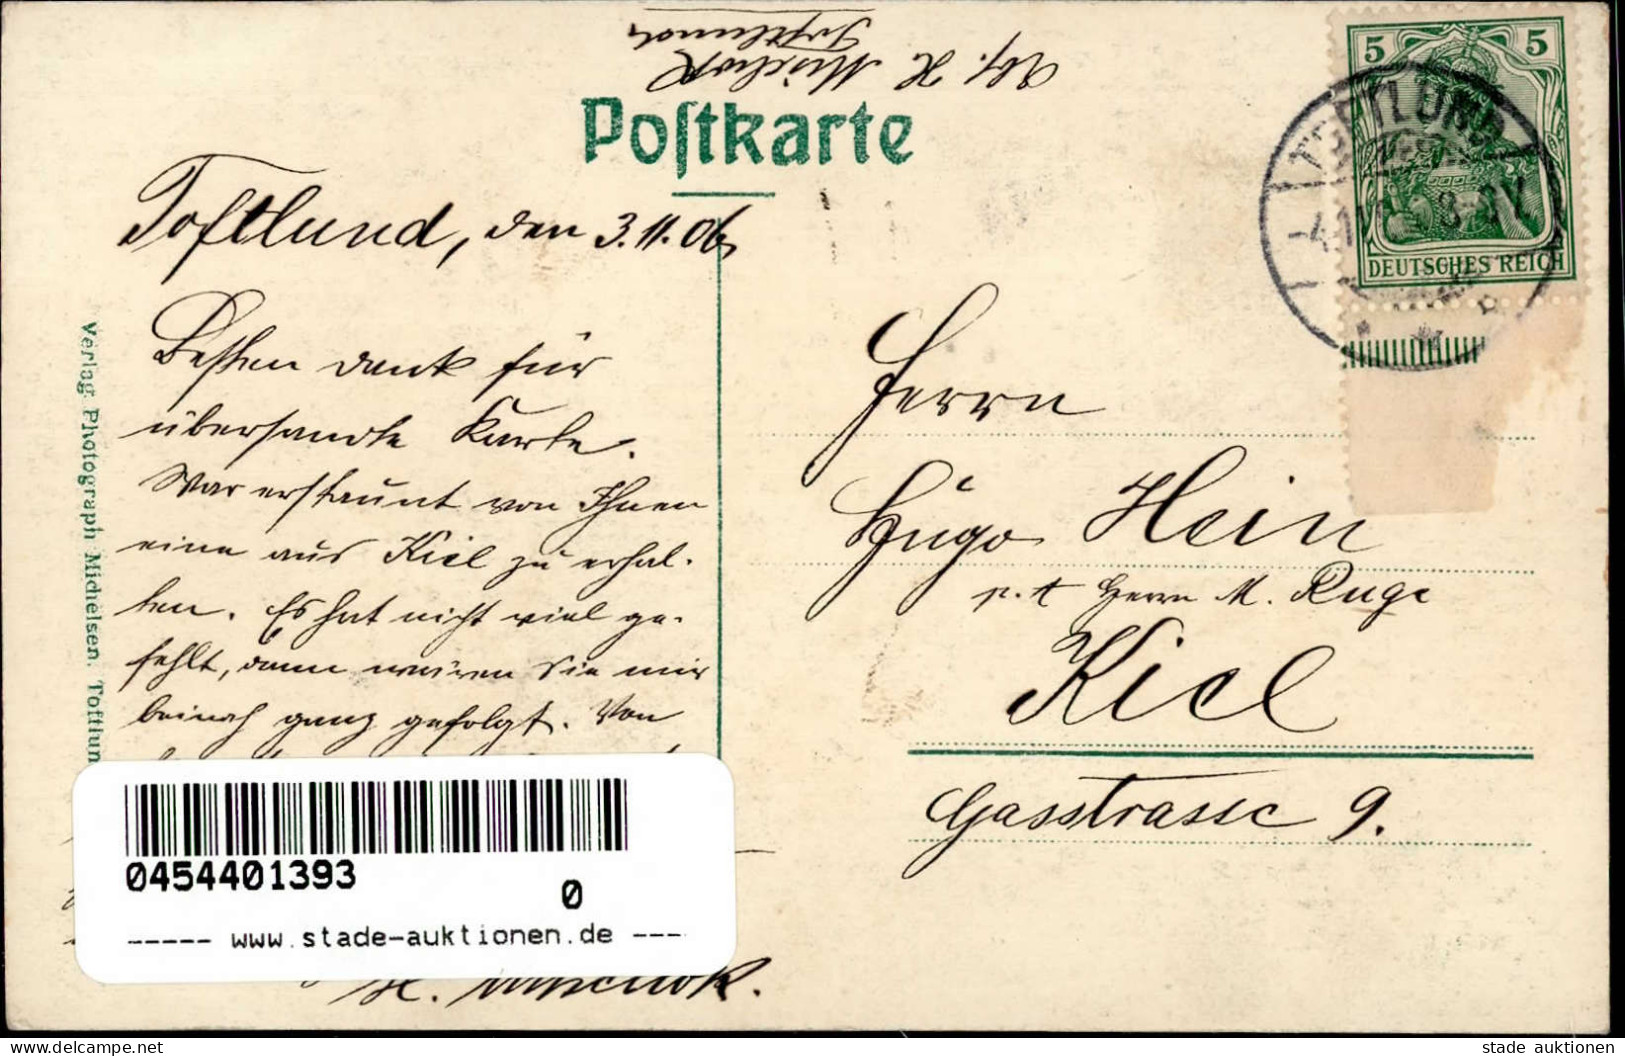 Abs. H.
Toftlund
Postkarte
5 5
DEUTSCHES REICH
TOFTLUND
Toftlund, den 3.11.06.
Besten Dank für
übersandte Karte.
War erstaunt von Ihnen
eine aus Kiel zu erhal-
ten. Es hat nicht viel ge-
fehlt, dann wären Sie mir
beinah ganz gefolgt. Von
Verlag. Photograph Michelsen. Toftlun
Herrn
Hugo Hein
p. t Herrn M. Ruge
Kiel
Gasstrasse 9.
0454401393
0
----- www.stade-auktionen.de ---
H.
www.delcampe.net
stade auktionen